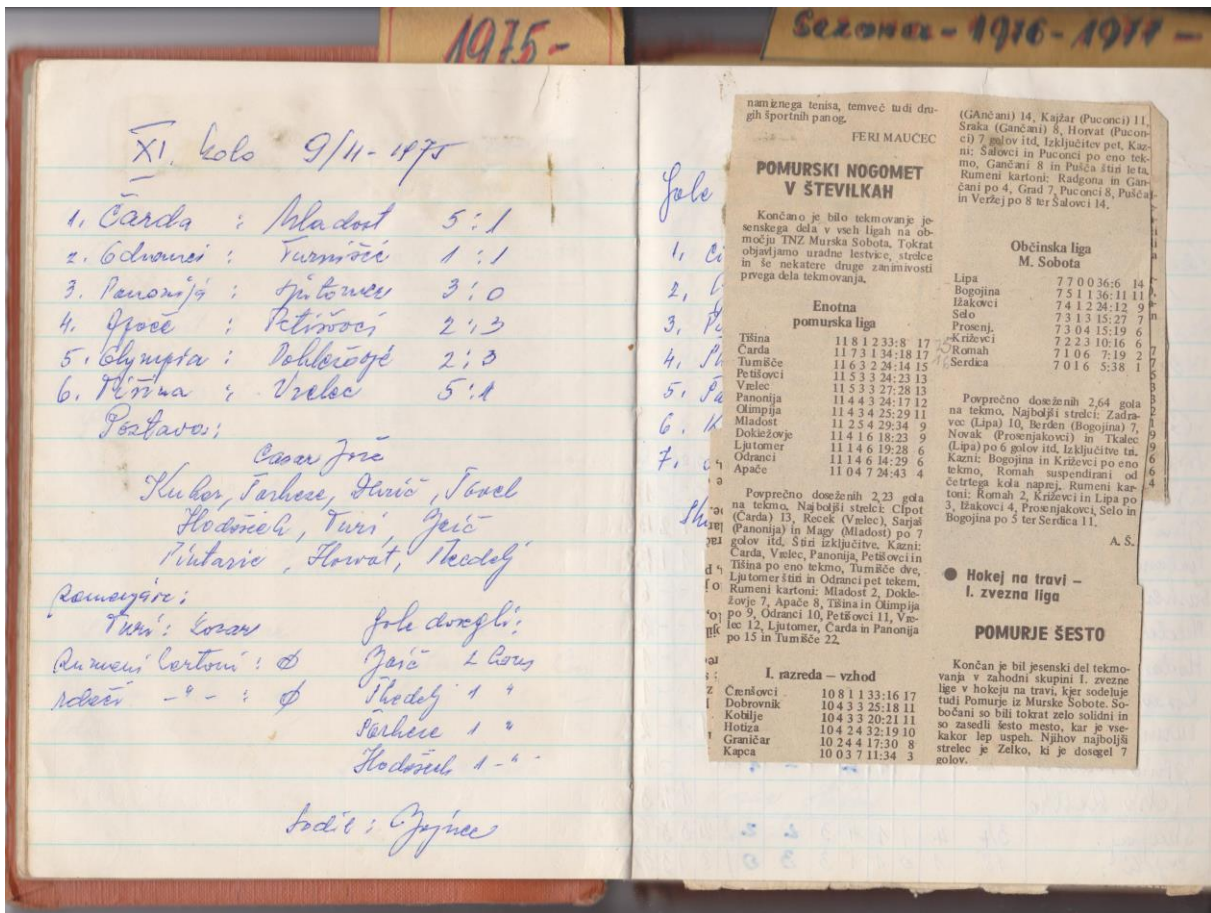 1975-
Sezona - 1976 - 1977 -
XI. kolo 9/11-1975
1. Čarda : Mladost 5:1
2. Odranci : Turnišče 1:1
3. Panonija : 3:0
4. : Petišovci 2:3
5. Olympia : 2:3
6. Tišina : Vrelec 5:1
Postava:
Casar Jože
Kuhar,
Horvat,
Turi:
Gole dosegli:
Rumeni kartoni: Ø
rdeči -"- : Ø
1 "
1 "
1 -"-
Sodil:
Gole
1.
2.
3.
4.
5.
6.
7.
namiznega tenisa, temveč tudi dru-
gih športnih panog.
FERI MAUČEC
POMURSKI NOGOMET
V ŠTEVILKAH
Končano je bilo tekmovanje je-
senskega dela v vseh ligah na ob-
močju TNZ Murska Sobota. Tokrat
objavljamo uradne lestvice, strelce
in še nekatere druge zanimivosti
prvega dela tekmovanja.
Enotna
pomurska liga
Tišina 11 8 1 2 33:8 17
Čarda 11 7 3 1 34:18 17
Turnišče 11 6 3 2 24:14 15
Petišovci 11 5 3 3 24:23 13
Vrelec 11 5 3 3 27:28 13
Panonija 11 4 4 3 24:17 12
Olimpija 11 4 3 4 25:29 11
Mladost 11 2 5 4 29:34 9
Dokležovje 11 4 1 6 18:23 9
Ljutomer 11 1 4 6 19:28 6
Odranci 11 1 4 6 14:29 6
Apače 11 0 4 7 24:43 4
Povprečno doseženih 2,23 gola
na tekmo. Najboljši strelci: Cipot
(Čarda) 13, Recek (Vrelec), Sarjaš
(Panonija) in Magy (Mladost) po 7
golov itd. Štiri izključitve. Kazni:
Čarda, Vrelec, Panonija, Petišovci in
Tišina po eno tekmo, Turnišče dve,
Ljutomer štiri in Odranci pet tekem.
Rumeni kartoni: Mladost 2, Dokle-
žovje 7, Apače 8, Tišina in Olimpija
po 9, Odranci 10, Petišovci 11, Vre-
lec 12, Ljutomer, Čarda in Panonija
po 15 in Turnišče 22.
I. razreda – vzhod
Črenšovci 10 8 1 1 33:16 17
Dobrovnik 10 4 3 3 25:18 11
Kobilje 10 4 3 3 20:21 11
Hotiza 10 4 2 4 32:19 10
Graničar 10 2 4 4 17:30 8
Kapca 10 0 3 7 11:34 3
(GAnčani) 14, Kajžar (Puconci) 11,
Sraka (Gančani) 8, Horvat (Pucon-
ci) 7 golov itd. Izključitev pet. Kaz-
ni: Šalovci in Puconci po eno tek-
mo, Gančani 8 in Pušča štiri leta.
Rumeni kartoni: Radgona in Gan-
čani po 4, Grad 7, Puconci 8, Pušča
in Veržej po 8 ter Šalovci 14.
Občinska liga
M. Sobota
Lipa 7 7 0 0 36:6 14
Bogojina 7 5 1 1 36:11 11
Ižakovci 7 4 1 2 24:12 9
Selo 7 3 1 3 15:27 7
Prosenj. 7 3 0 4 15:19 6
Križevci 7 2 2 3 10:16 6
Romah 7 1 0 6 7:19 2
Serdica 7 0 1 6 5:38 1
Povprečno doseženih 2,64 gola
na tekmo. Najboljši strelci: Zadra-
vec (Lipa) 10, Berden (Bogojina) 7,
Novak (Prosenjakovci) in Tkalec
(Lipa) po 6 golov itd. Izključitve tri.
Kazni: Bogojina in Križevci po eno
tekmo, Romah suspendirani od
četrtega kola naprej. Rumeni kar-
toni: Romah 2, Križevci in Lipa po
3, Ižakovci 4, Prosenjakovci, Selo in
Bogojina po 5 ter Serdica 11.
A. Š.
● Hokej na travi –
I. zvezna liga
POMURJE ŠESTO
Končan je bil jesenski del tekmo-
vanja v zahodni skupini I. zvezne
lige v hokeju na travi, kjer sodeluje
tudi Pomurje iz Murske Sobote. So-
bočani so bili tokrat zelo solidni in
so zasedli šesto mesto, kar je vse-
kakor lep uspeh. Njihov najboljši
strelec je Zelko, ki je dosegel 7
golov.